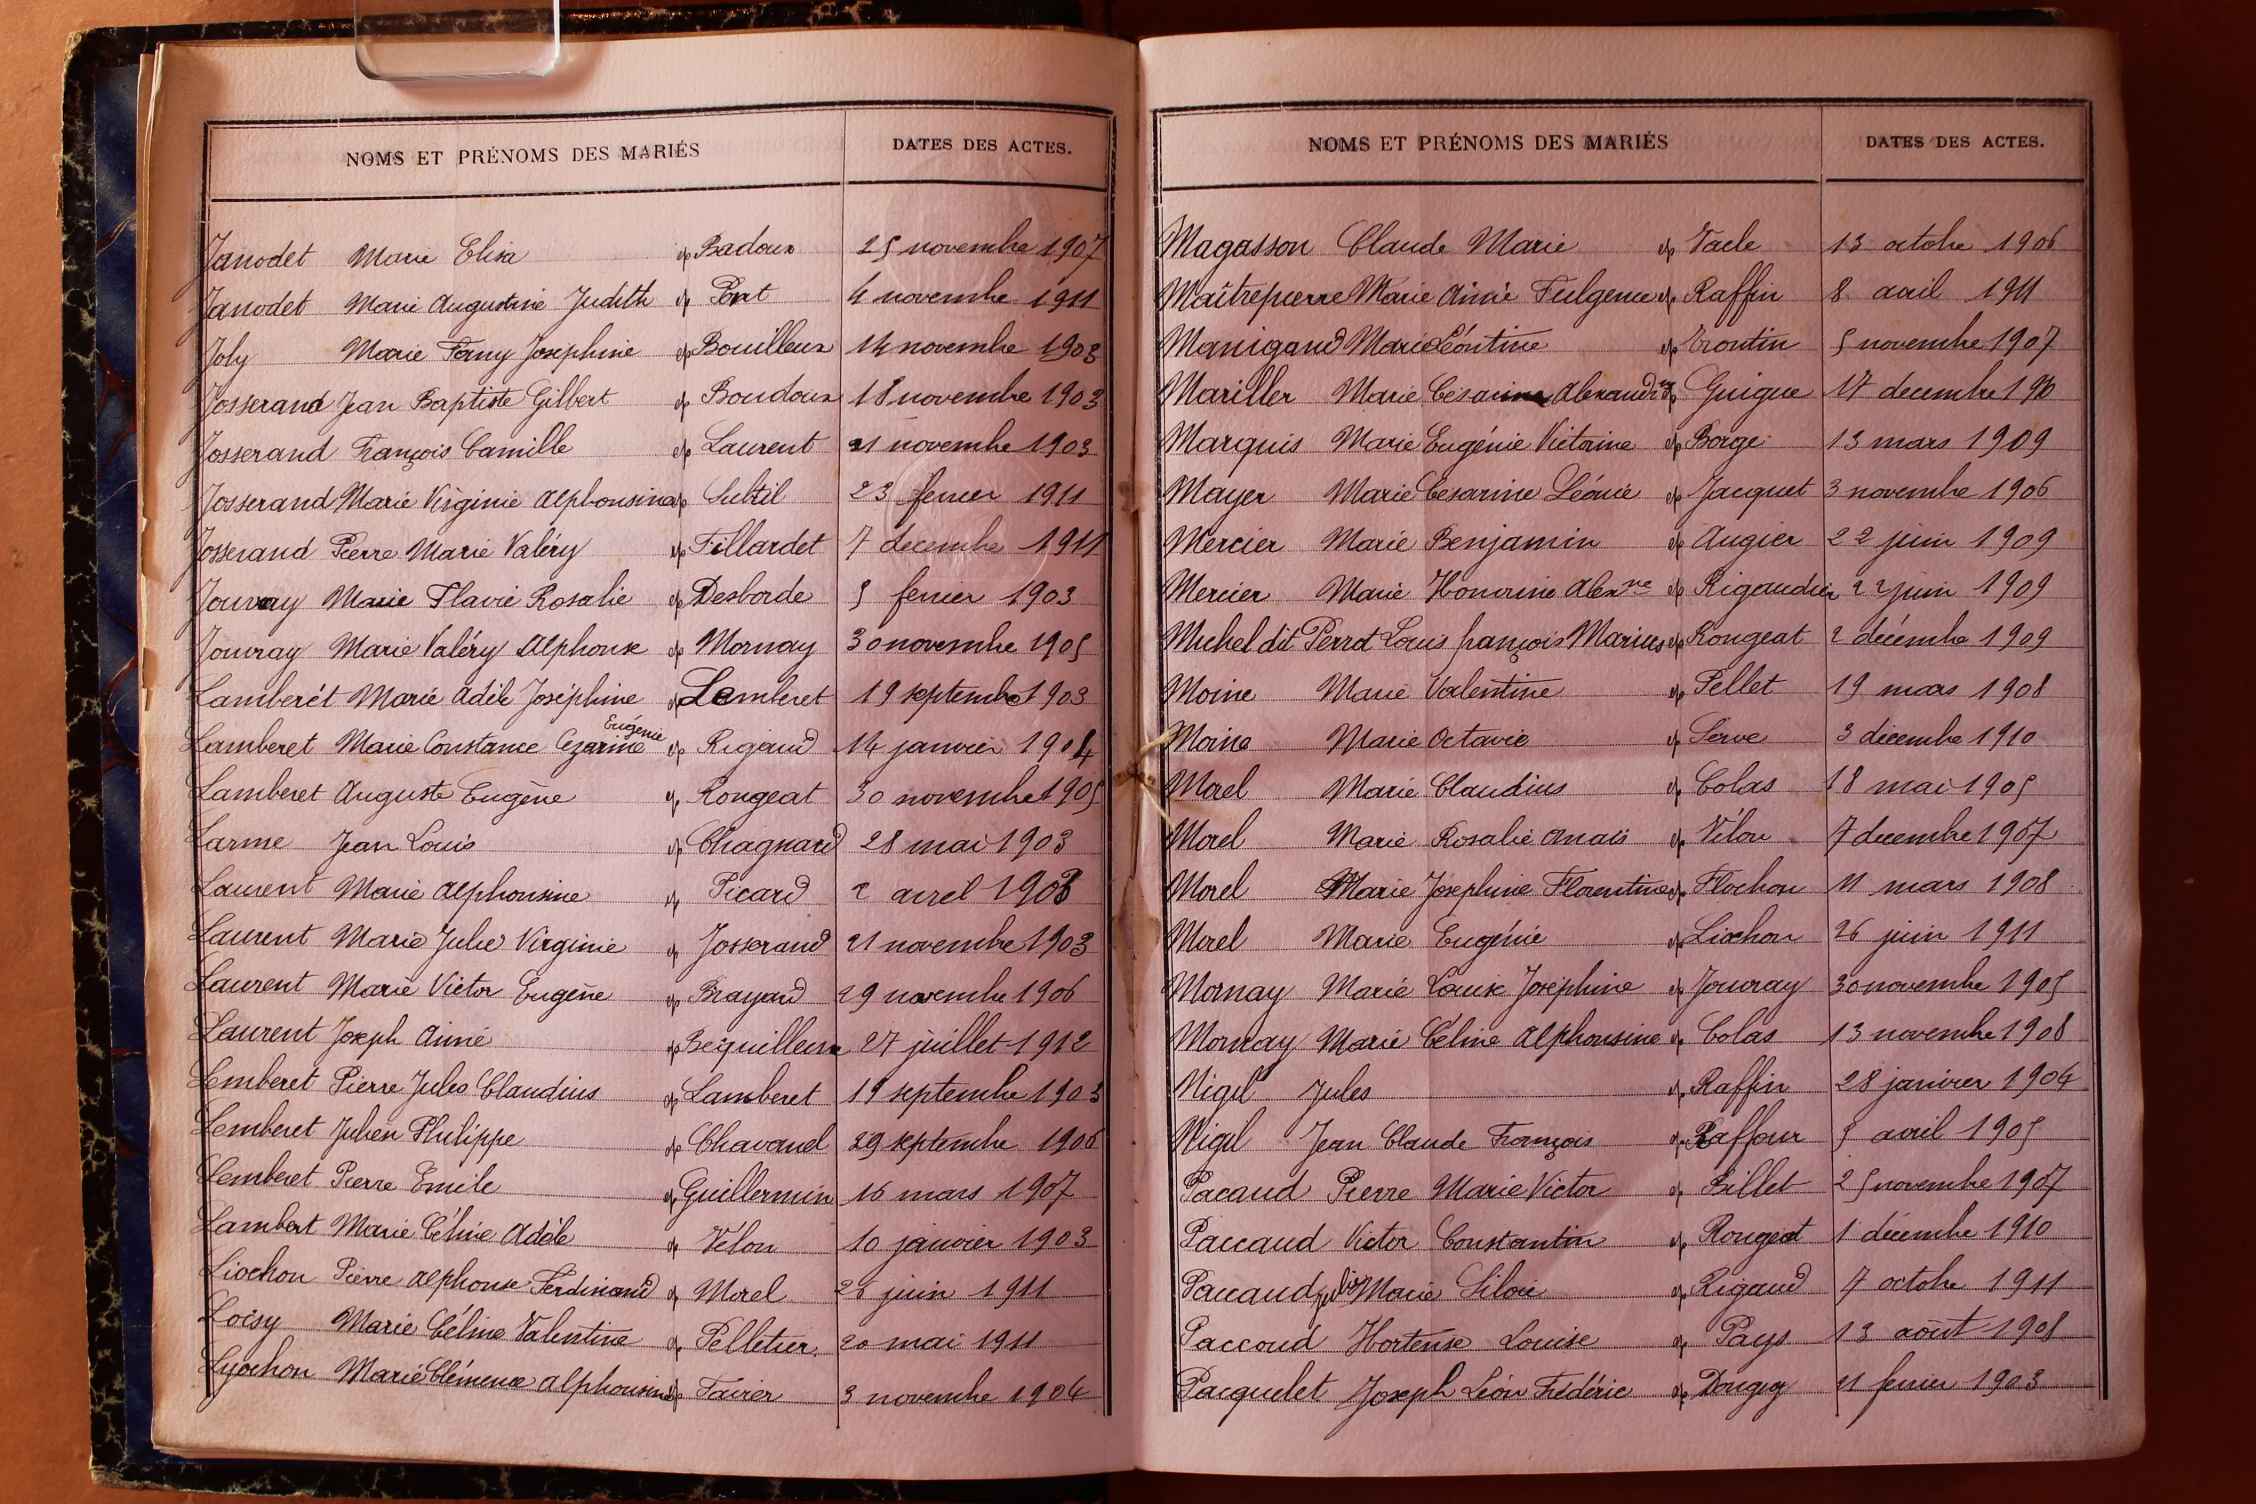 NOMS ET PRÉNOMS DES MARIÉS DATES DES ACTES.
Janodet Marie Elisa ep Badoux 25 novembre 1907
Janodet Marie Augustine Judith ep Pont 4 novembre 1911
Joly Marie Fany Josephine ep Bouilloux 14 novembre 1908
Josserand Jean Baptiste Gilbert ep Boudoux 18 novembre 1903
Josserand François Camille ep Laurent 21 novembre 1903
Josserand Marie Virginie Alphonsine ep Subtil 23 fevrier 1911
Josserand Pierre Marie Valéry ep Fillardet 7 decembre 1911
Jouvray Marie Flavie Rosalie ep Desborde 5 fevrier 1903
Jouvray Marie Valéry Alphonse ep Mornay 30 novembre 1905
Lamberét Marie Adèle Joséphine ep Lemberet 19 septembre 1903
Eugénie
Lamberet Marie Constance Cezarine ep Rigaud 14 janvier 1904
Lamberet Auguste Eugène ep Rongeat 30 novembre 1905
Larme Jean Louis ep Chagnard 28 mai 1903
Laurent Marie Alphonsine ep Picard 2 avril 1908
Laurent Marie Julie Virginie ep Josserand 21 novembre 1903
Laurent Marie Victor Eugène ep Brayard 29 novembre 1906
Laurent Joseph Aimé ep 27 juillet 1912
Lemberet Pierre Jules Claudius ep Lamberet 19 septembre 1903
Lemberet Julien Philippe ep Chavanel 29 septembre 1906
Lemberet Pierre Emile ep Guillermin 16 mars 1907
Lambert Marie Céline Adèle ep Vélon 10 janvier 1903
Liochon Pierre Alphonse Ferdinand ep Morel 26 juin 1911
Loisy Marie Céline Valentine ep Pelletier 20 mai 1911
Lyochon Marie Clémence Alphonsine ep Favier 3 novembre 1904
NOMS ET PRÉNOMS DES MARIÉS DATES DES ACTES.
Magasson Claude Marie ep Vacle 13 octobre 1906
Maîtrepierre Marie Aimé Fulgence ep Raffin 8 avril 1911
Manigand Marie Léontine ep Trontin 5 novembre 1907
Mariller Marie Césarine Alexandrine ep Guigue 17 decembre 1910
Marquis Marie Eugénie Victorine ep Borge 13 mars 1909
Mayer Marie Cesarine Léonie ep Jacquet 3 novembre 1906
Mercier Marie Benjamin ep Augier 22 juin 1909
Mercier Marie Honorine Alexne ep Rigaudier 22 juin 1909
Michel dit Perrot Louis françois Marius ep Rongeat 2 décembre 1909
Moine Marie Valentine ep Pellet 19 mars 1908
Moine Marie Octavie ep Serve 3 décembre 1910
Morel Marie Claudius ep Colas 18 mai 1905
Morel Marie Rosalie Anaïs ep Vélon 7 decembre 1907
Morel Marie Josephine Florentine ep Flochon 11 mars 1908
Morel Marie Eugénie ep Liochon 26 juin 1911
Mornay Marie Louise Joséphine ep Jouvray 30 novembre 1905
Mornay Marie Céline Alphonsine ep Colas 13 novembre 1908
Nigel Jules ep Raffin 28 janvier 1904
Nigel Jean Claude François ep Raffour 5 avril 1905
Pacaud Pierre Marie Victor ep Billet 25 novembre 1907
Paccaud Victor Constantin ep Rongeat 1 décembre 1910
Paccaud Marie Siloé ep Rigaud 7 octobre 1911
Paccoud Hortense Louise ep Pays 13 août 1908
Pacquelet Joseph Léon Frédéric ep Dougey 21 fevrier 1903